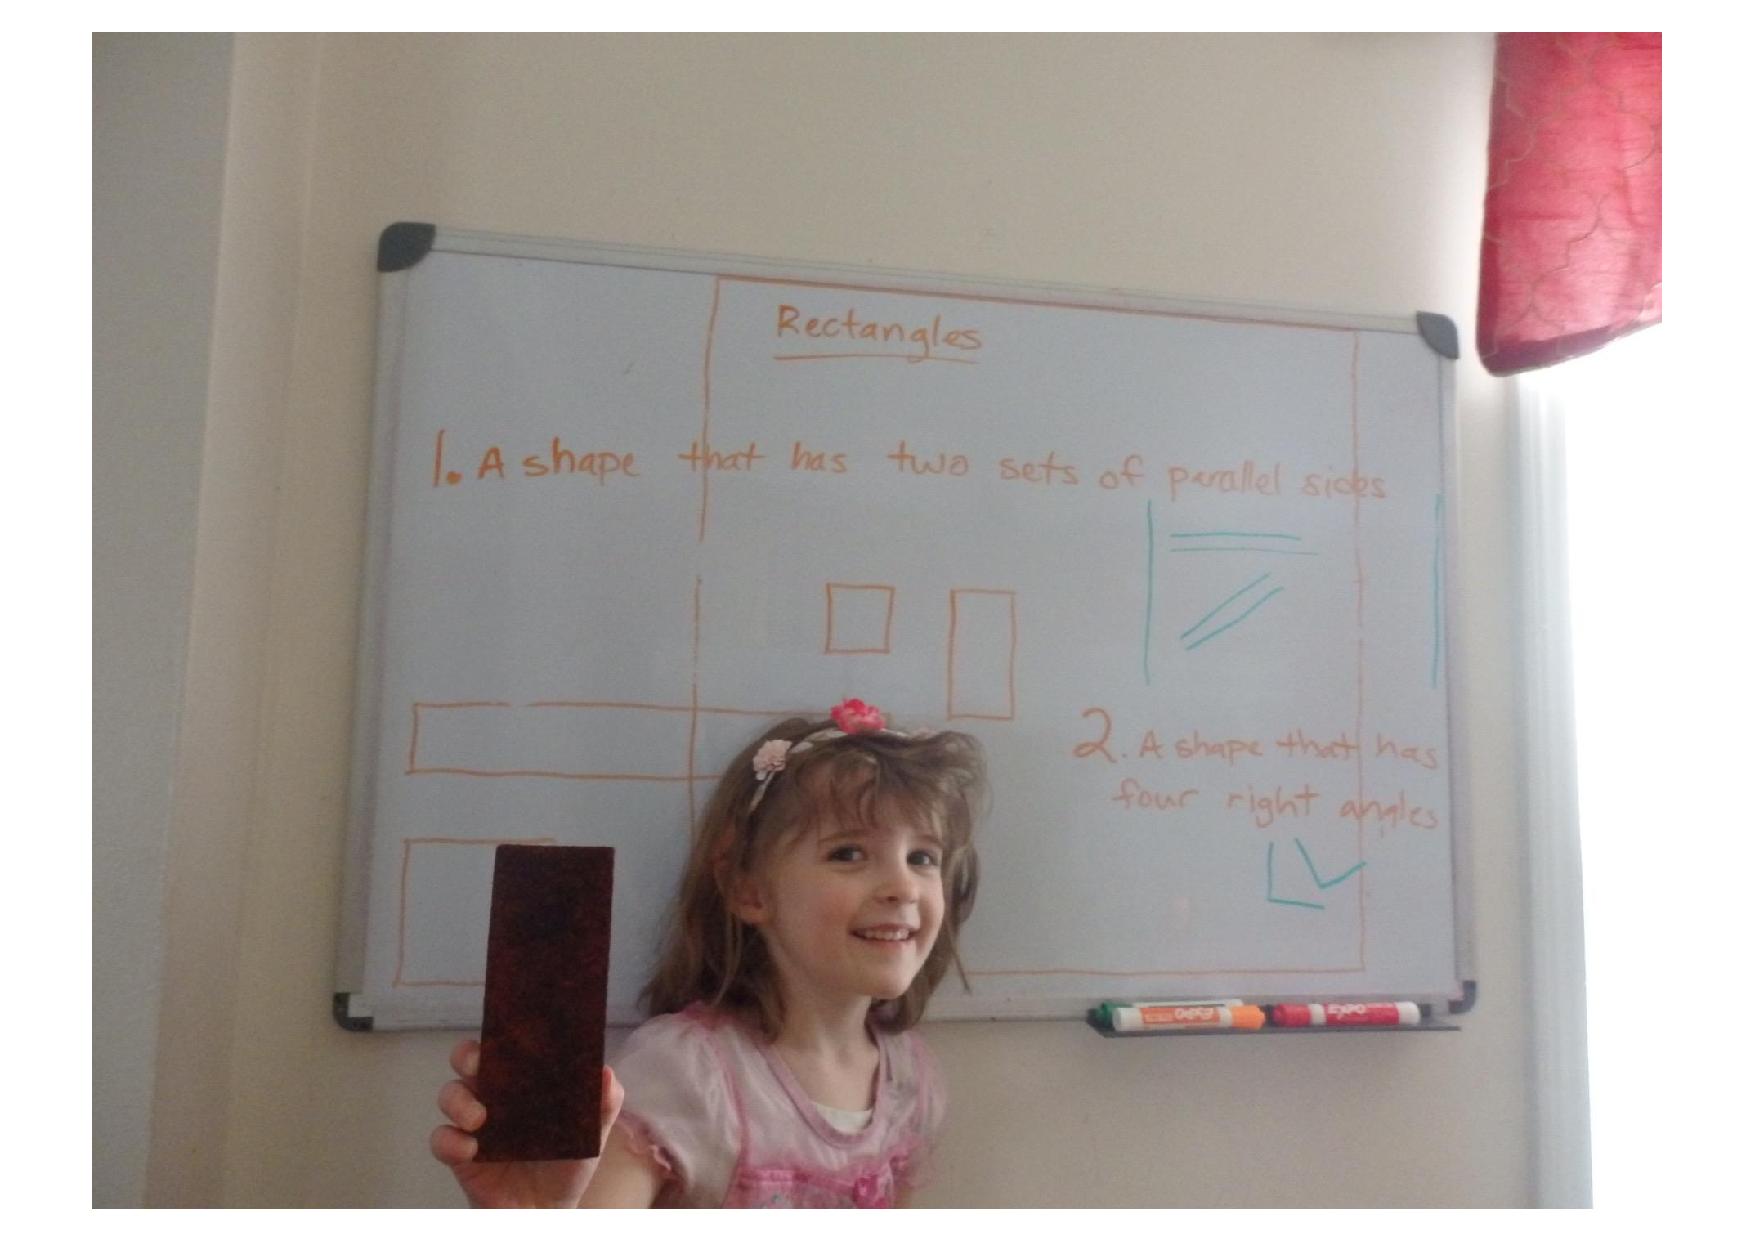 Rectangles
1. A shape that has two sets of parallel sides
2. A shape that has
four right angles
EXPO
EXPO